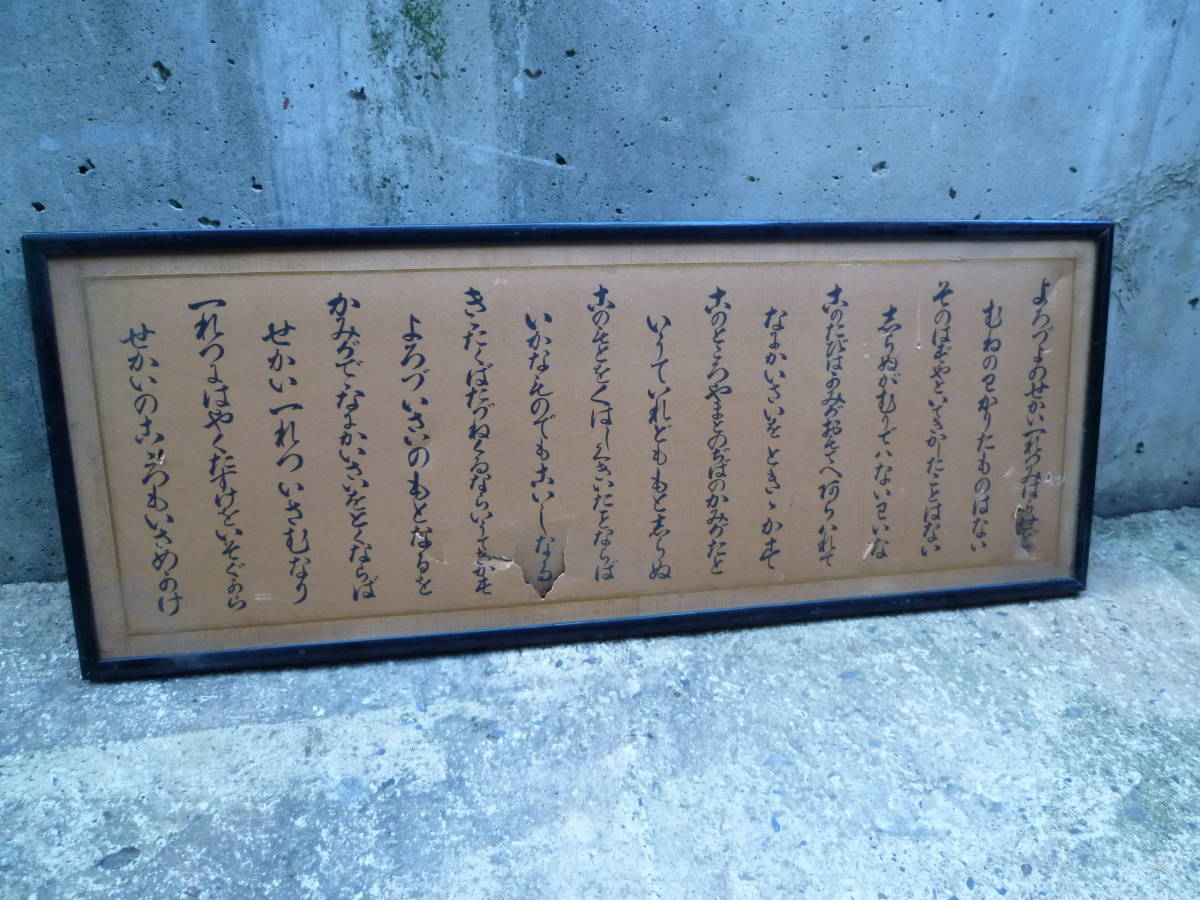 よろづよのせかい一れつみはらせど
むねのわかりたものはない
そのはずやといてきかしたことはない
しらぬがむりでハないわいな
このたびはかみがおもてへあらハれて
なにかいさいをとききかす
このところやまとのぢばのかみがたと
いうていれどももとしらぬ
このもとをくはしくきいたことならば
いかなものでもこいしなる
きゝたくばたづねくるならいうてきかす
よろづいさいのもとなるを
かみがでゝなにかいさいをとくならば
せかい一れついさむなり
一れつにはやくたすけをいそぐから
せかいのこゝろもいさめかけ